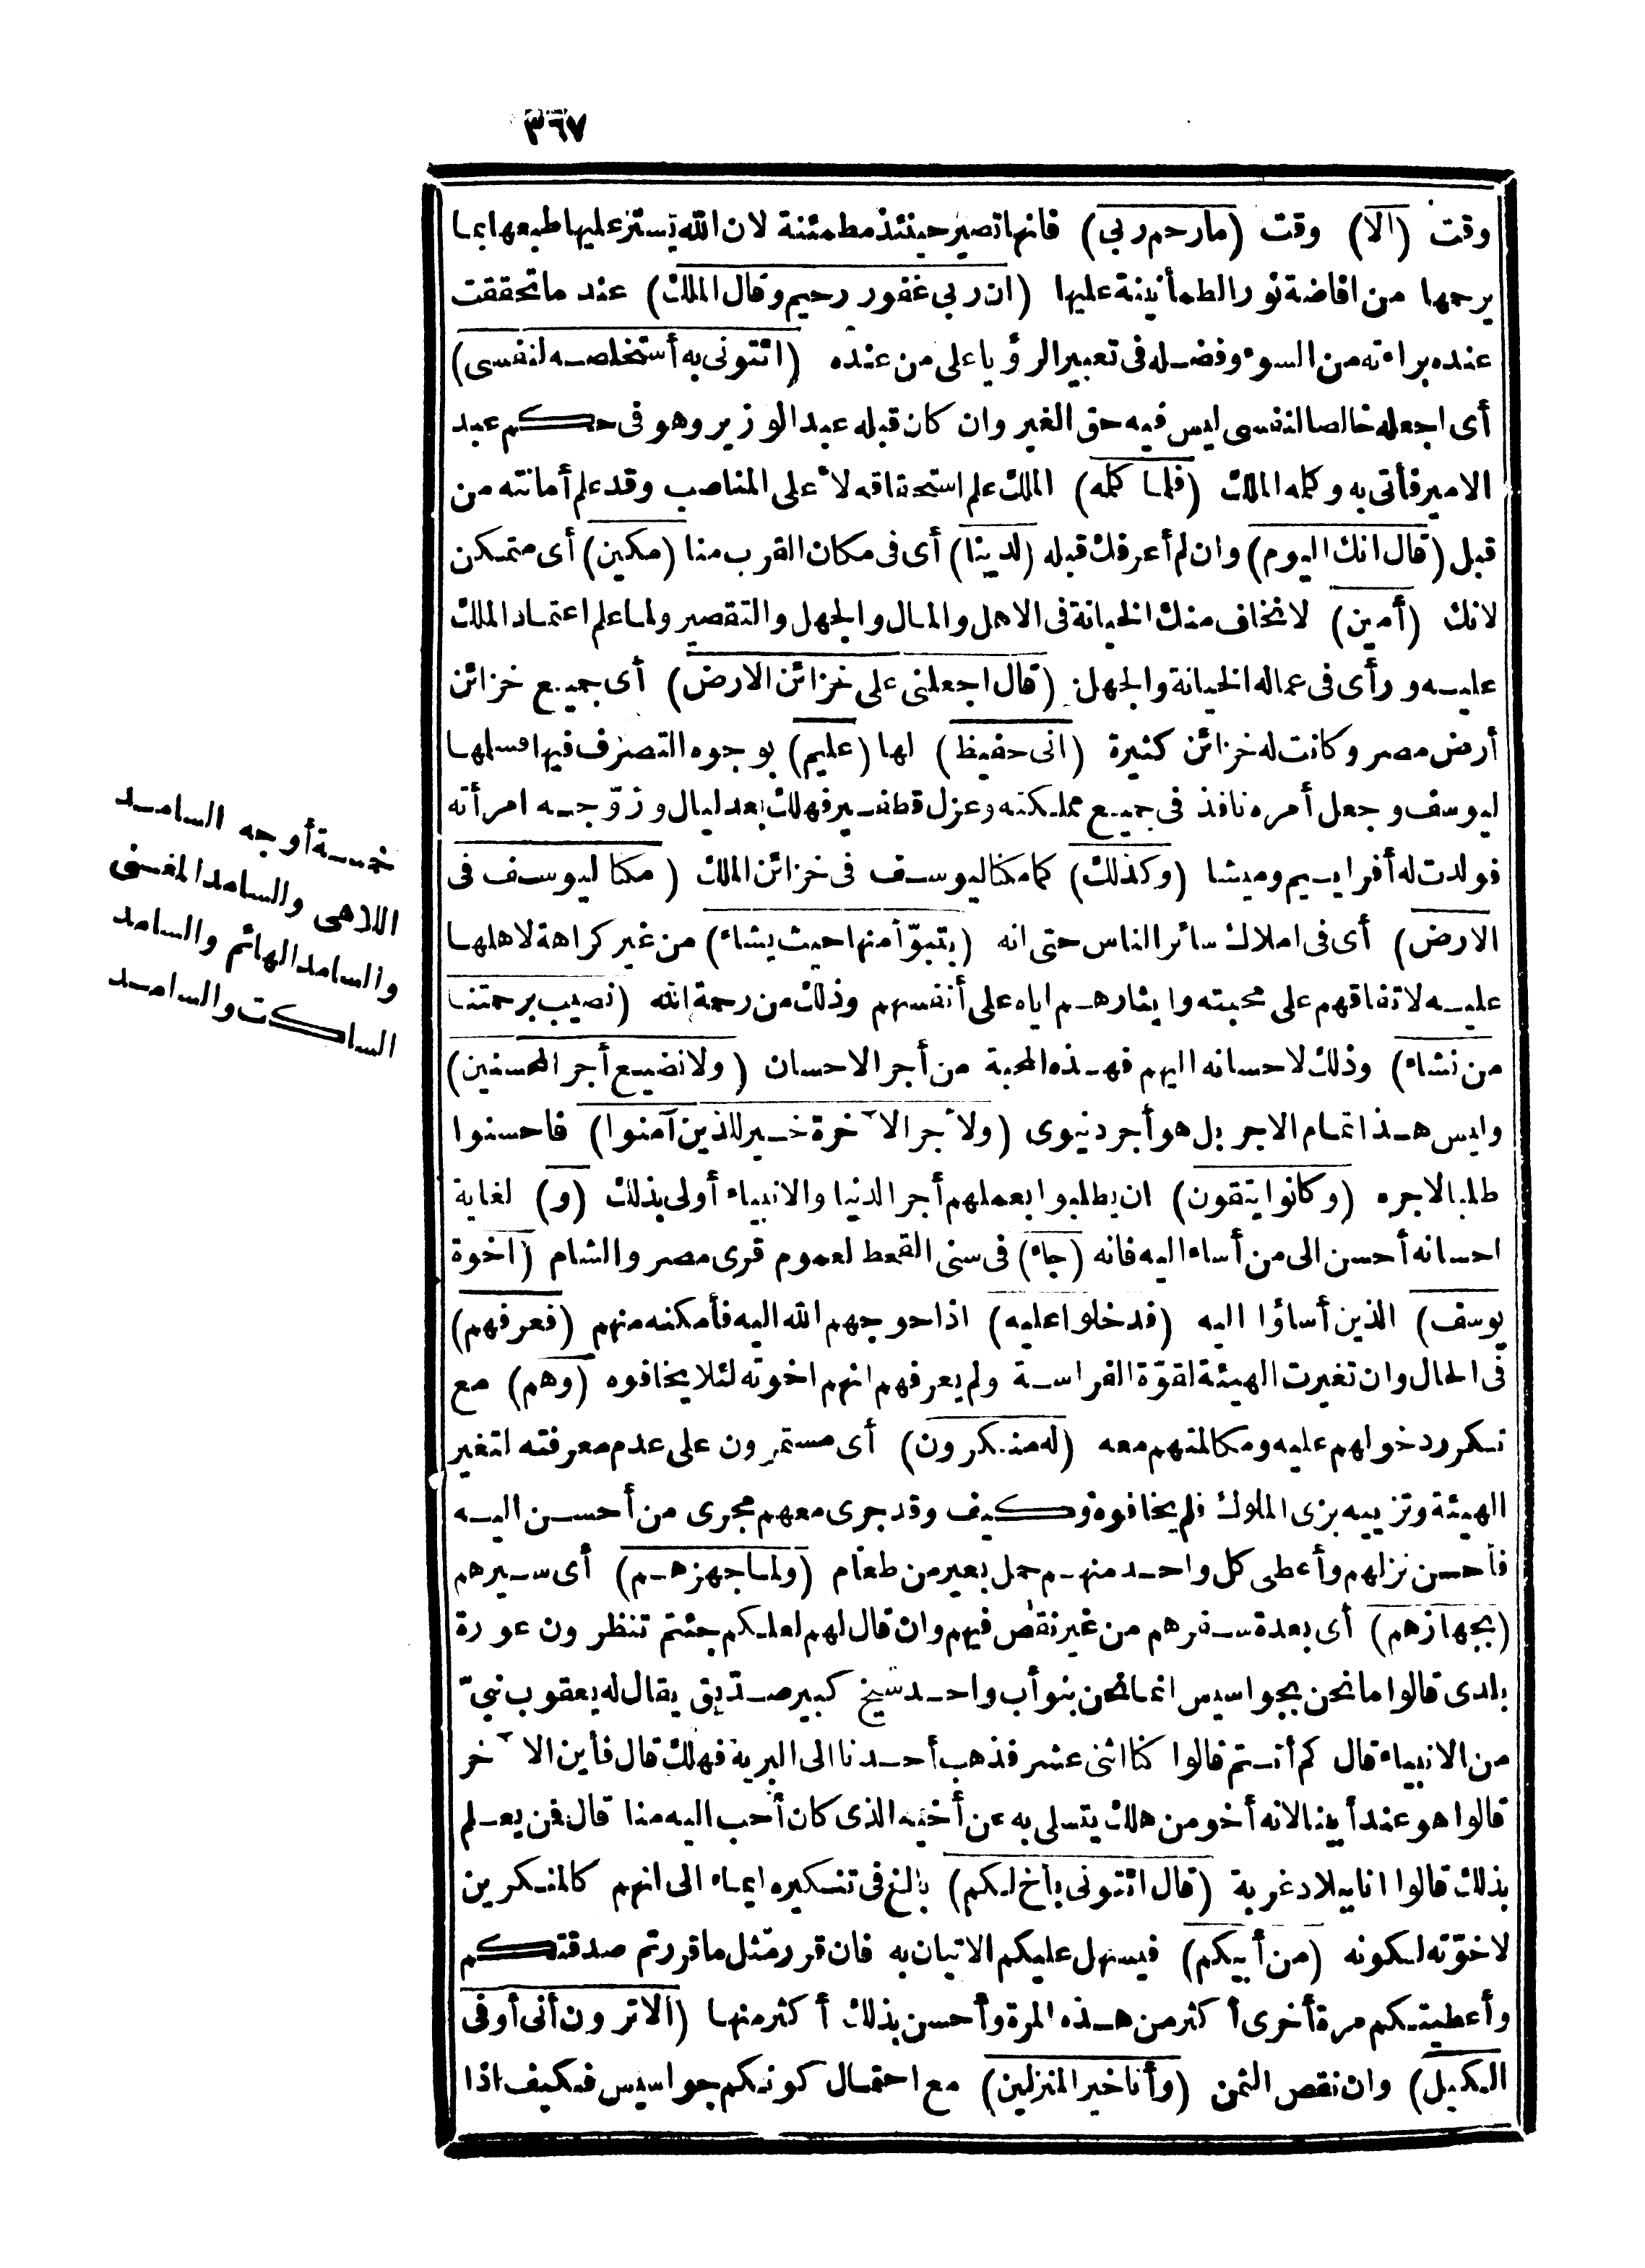 ٣٦٧
وقت (الا) وقت (مارحم ربى) فانها تصير حينئذ مطمئنة لان الله يستر عليها طبعها بما
يرحمها من افاضة نور الطمأنينة عليها (ان ربى غفور رحيم وقال الملك) عند ما تحققت
عنده براءته من السوء وفضله فى تعبير الرؤيا على من عنده (ائتونى به أستخلصه لنفسى)
أى اجعله خالصا لنفسى ليس فيه حق الغير وان كان قبله عبد الوزير وهو فى حكم عبد
الامير فأتى به وكله الملك (فلما كلمه) الملك علم استحقاقه لأعلى المناصب وقد علم أمانته من
قبل (قال انك اليوم) وان لم أعرفك قبله (لدينا) أى فى مكان القرب منا (مكين) أى متمكن
لانك (أمين) لا نخاف منك الخيانة فى الاهل والمال والجهل والتقصير ولما علم اعتماد الملك
عليه ورأى فى عماله الخيانة والجهل (قال اجعلنى على خزائن الارض) أى جميع خزائن
أرض مصر وكانت له خزائن كثيرة (انى حفيظ) لها (عليم) بوجوه التصرف فيها فسلمها
ليوسف وجعل أمره نافذ فى جميع مملكته وعزل قطفير فهلك بعد ليال وزوّجه امرأته
فولدت له أفراييم وميشا (وكذلك) كما مكنا ليوسف فى خزائن الملك (مكنا ليوسف فى
الارض) أى فى املاك سائر الناس حتى انه (يتبوّأ منها حيث يشاء) من غير كراهة لاهلها
عليه لاتفاقهم على محبته وايثارهم اياه على أنفسهم وذلك من رحمة الله (نصيب برحمتنا
من نشاء) وذلك لاحسانه اليهم فهذه المحبة من أجر الاحسان (ولا نضيع أجر المحسنين)
وليس هذا تمام الاجر بل هو أجر دنيوى (ولأجر الآخرة خير للذين آمنوا) فاحسنوا
طلبا لاجره (وكانوا يتقون) ان يطلبوا بعملهم أجر الدنيا والانبياء أولى بذلك (و) لغاية
احسانه أحسن الى من أساء اليه فانه (جاء) فى سنى القحط لعموم قرى مصر والشام (اخوة
يوسف) الذين أساؤا اليه (فدخلوا عليه) اذ احوجهم الله اليه فأمكنه منهم (فعرفهم)
فى الحال وان تغيرت الهيئة لقوّة الفراسة ولم يعرفهم انهم اخوته لئلا يخافوه (وهم) مع
تكرر دخولهم عليه ومكالمتهم معه (له منكرون) أى مستمرون على عدم معرفته لتغير
الهيئة وتزييه بزى الملوك فلم يخافوه وكيف وقد جرى معهم مجرى من أحسن اليه
فأحسن نزلهم وأعطى كل واحد منهم حمل بعير من طعام (ولما جهزهم) أى سيرهم
(بجهازهم) أى بعدة سفرهم من غير نقص فيهم وان قال لهم لعلكم جئتم تنظرون عورة
بلدى قالوا ما نحن بجواسيس انما نحن بنو أب واحد شيخ كبير صدّيق يقال له يعقوب نبىّ
من الانبياء قال كم أنتم قالوا كنا اثنى عشر فذهب أحدنا الى البرية فهلك قال فأين الآخر
قالوا هو عند أبينا لانه أخو من هلك يتسلى به عن أخيه الذى كان أحب اليه منا قال فمن يعلم
بذلك قالوا انا ببلاد غربة (قال ائتونى بأخ لكم) بالغ فى تنكيره ايماء الى انهم كالمنكرين
لاخوّته لكونه (من أبيكم) فيسهل عليكم الاتيان به فان قرر مثل ما قررتم صدقتكم
وأعطيتكم مرة أخرى أكثر من هذه المرة وأحسن بذلك أكثر منها (ألا ترون أنى أوفى
الكيل) وان نقص الثمن (وأنا خير المنزلين) مع احتمال كونكم جواسيس فكيف اذا
خمسة أوجه السامد
اللاهى والسامد المغنى
والسامد الهائم والسامد
الساكت والسامد